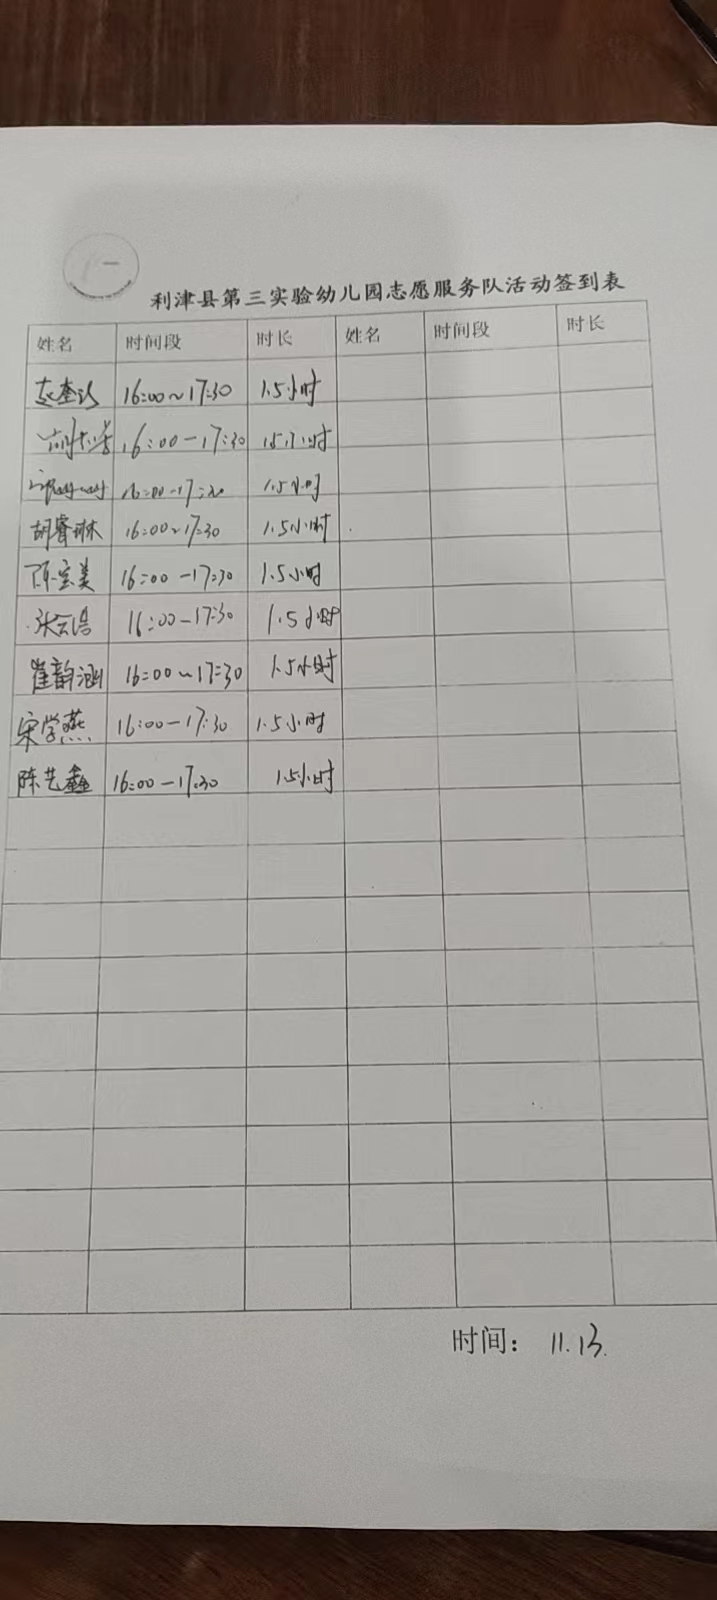 利津县第三实验幼儿园志愿服务队活动签到表
姓名 时间段 时长 姓名 时间段 时长
16:00~17:30 1.5小时
16:00-17:30 1.5小时
16:00-17:30 1.5小时
胡睿琳 16:00~17:30 1.5小时
陈宝美 16:00-17:30 1.5小时
张云浩 16:00-17:30 1.5小时
崔韵涵 16:00~17:30 1.5小时
宋学燕 16:00-17:30 1.5小时
陈艺鑫 16:00-17:30 1.5小时
时间： 11.13.